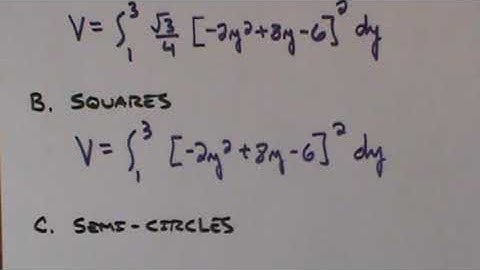 V = ∫₁³ √3/4 [-2y²+8y-6]² dy
B. SQUARES
V = ∫₁³ [-2y²+8y-6]² dy
C. SEMI-CIRCLES